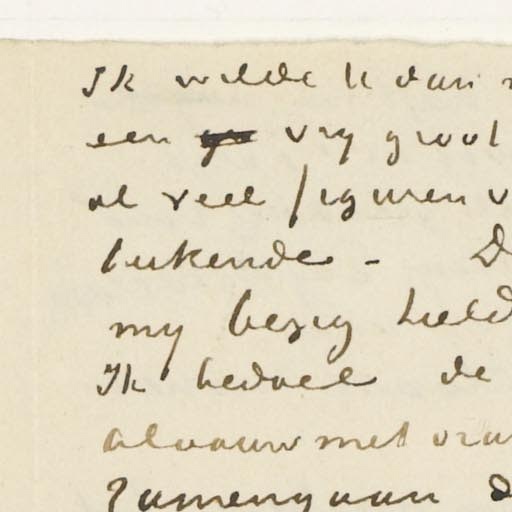 Ik wilde U dan
een vry groot
al veel figuren
teekende - D
my bezig hield
Ik bedoel de
alvouw met oran
Zamengaan d